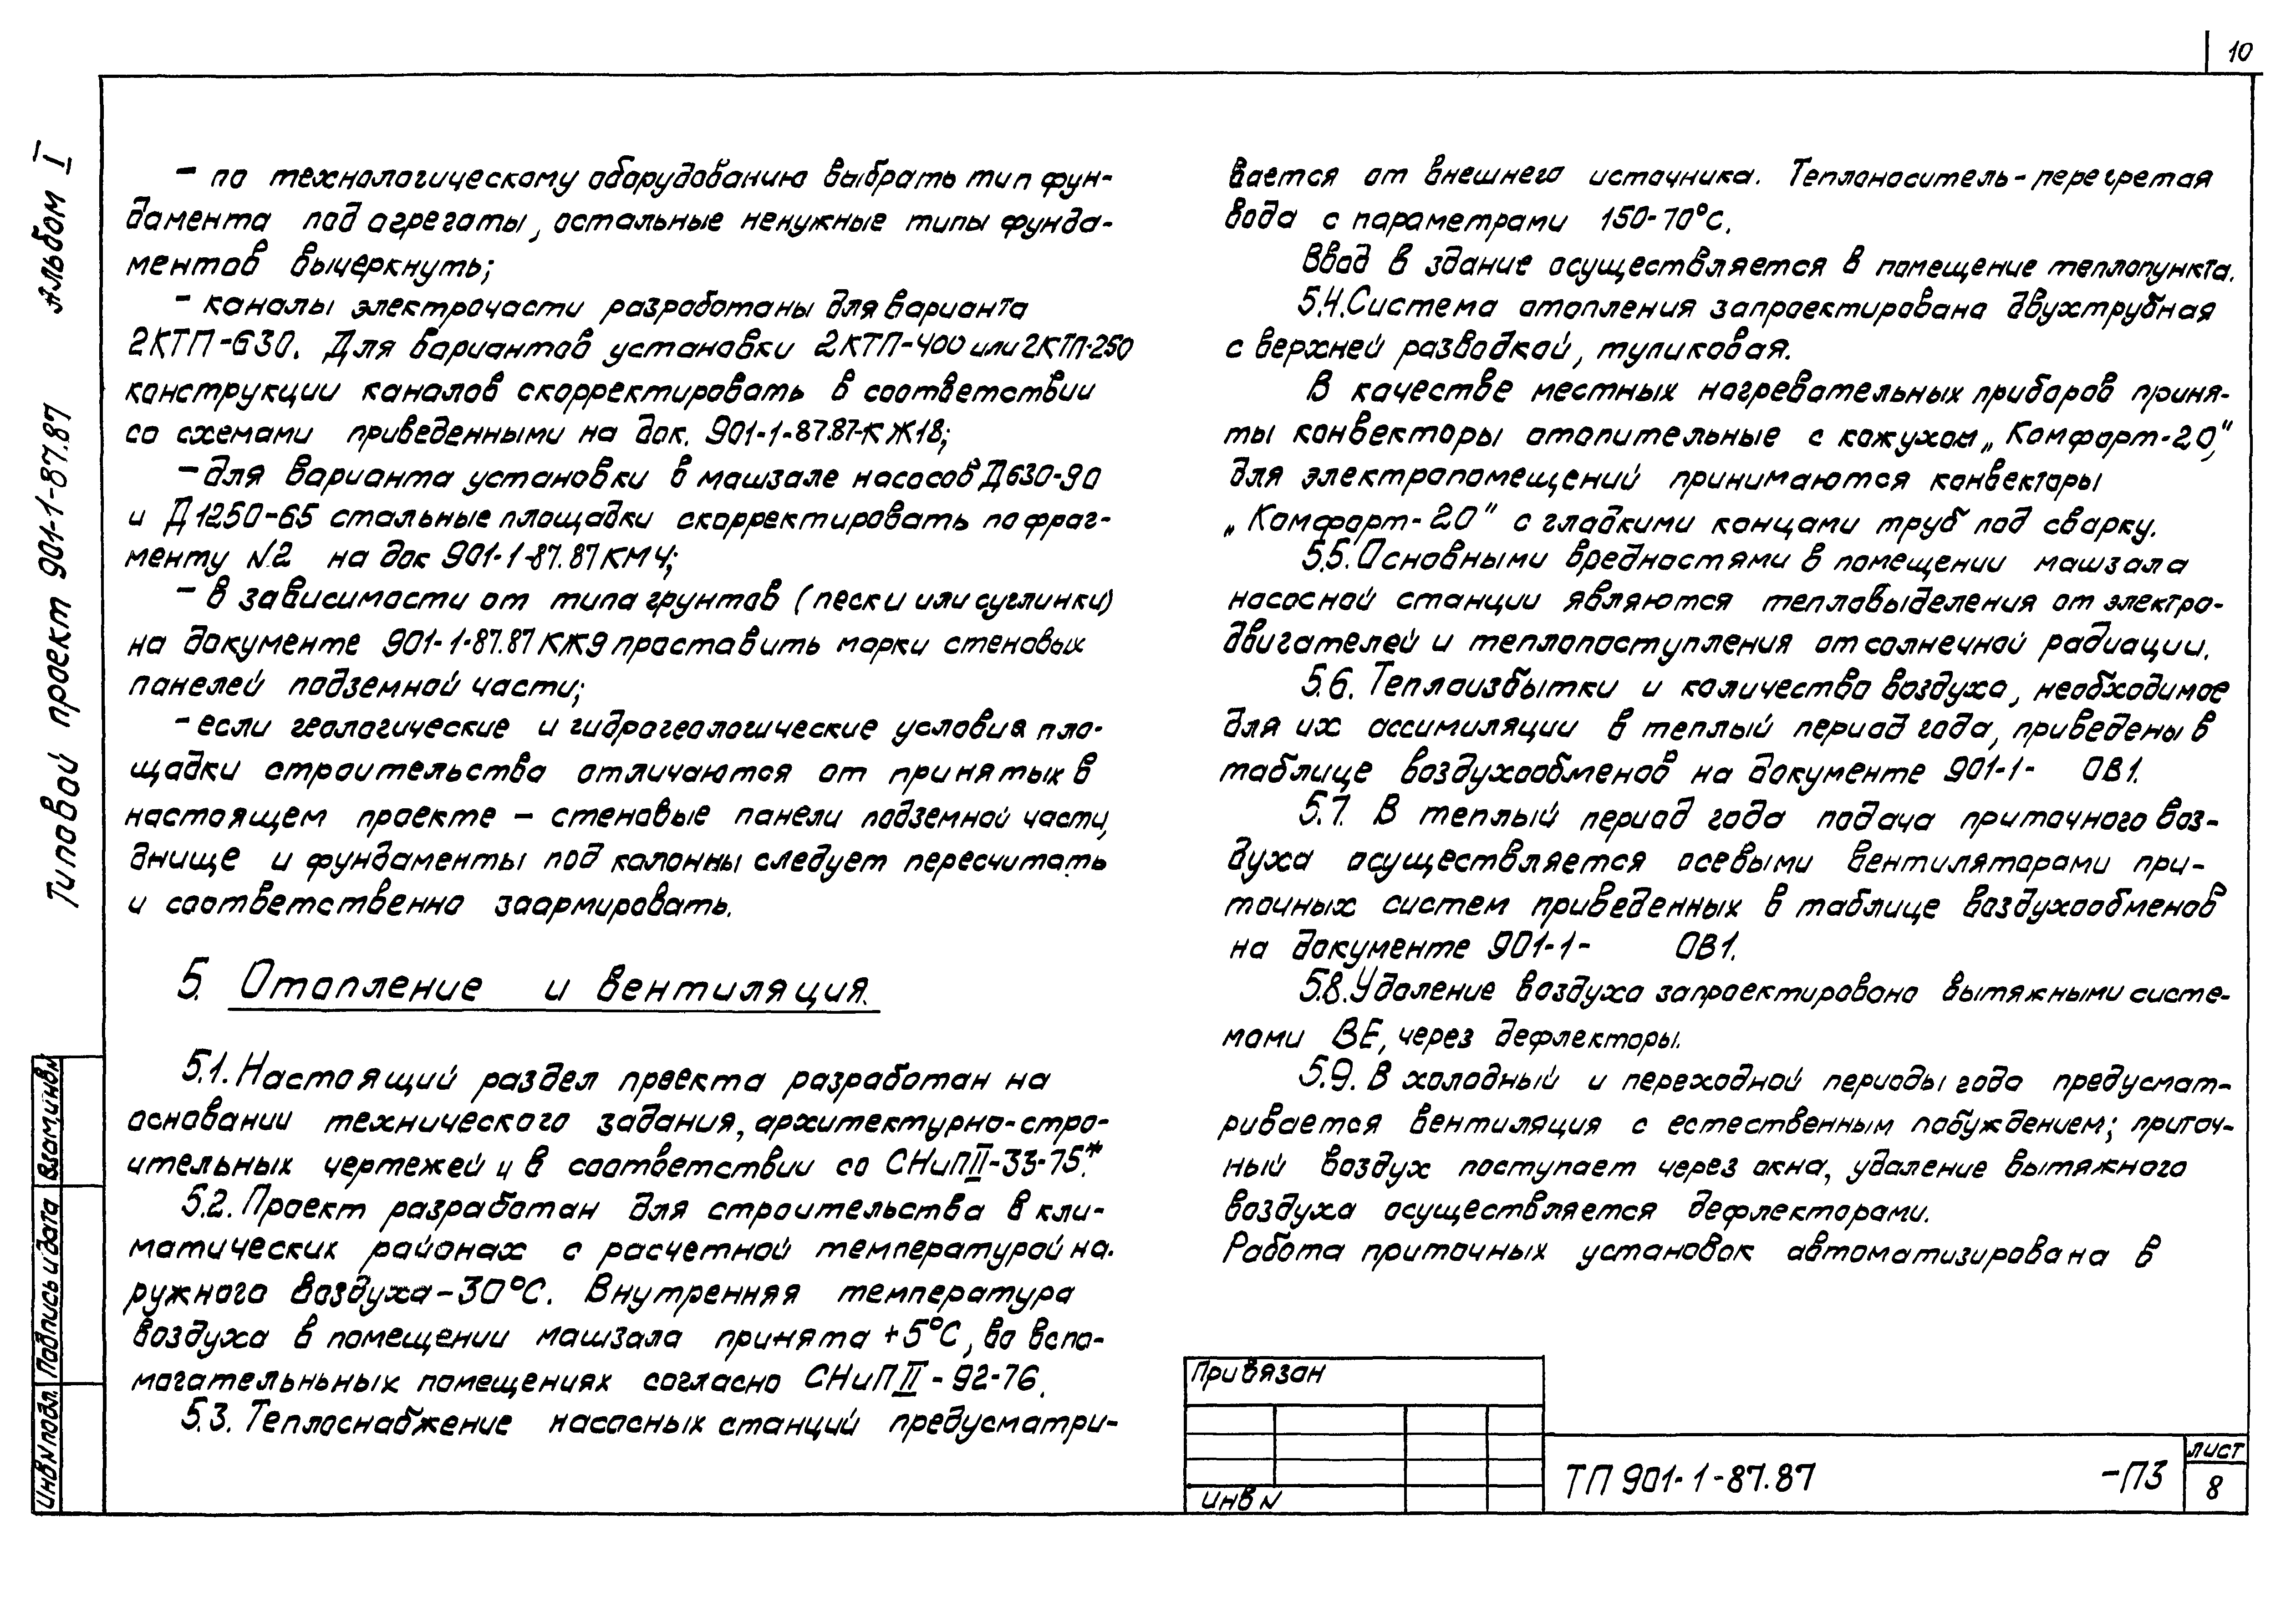 10
Альбом I
Типовой проект 901-1-87.87
– по технологическому оборудованию выбрать тип фун-
дамента под агрегаты, остальные ненужные типы фунда-
ментов вычеркнуть;
– каналы электрочасти разработаны для варианта
2КТП-630. Для вариантов установки 2КТП-400 или 2КТП-250
конструкции каналов скорректировать в соответствии
со схемами приведенными на док. 901-1-87.87-КЖ18;
– для варианта установки в машзале насосов Д630-90
и Д1250-65 стальные площадки скорректировать по фраг-
менту N2 на док 901-1-87.87 КМ4;
– в зависимости от типа грунтов (пески или суглинки)
на документе 901-1-87.87 КЖ9 проставить марки стеновых
панелей подземной части;
– если геологические и гидрогеологические условия пло-
щадки строительства отличаются от принятых в
настоящем проекте – стеновые панели подземной части,
днище и фундаменты под колонны следует пересчитать
и соответственно заармировать.
5. Отопление и вентиляция.
5.1. Настоящий раздел проекта разработан на
основании технического задания, архитектурно-стро-
ительных чертежей и в соответствии со СНиП II-33-75*.
5.2. Проект разработан для строительства в кли-
матических районах с расчетной температурой на-
ружного воздуха -30°С. Внутренняя температура
воздуха в помещении машзала принята +5°С, во вспо-
могательньных помещениях согласно СНиП II-92-76.
5.3. Теплоснабжение насосных станций предусматри-
вается от внешнего источника. Теплоноситель-перегретая
вода с параметрами 150-70°С.
Ввод в здание осуществляется в помещение теплопункта.
5.4. Система отопления запроектирована двухтрубная
с верхней разводкой, тупиковая.
В качестве местных нагревательных приборов приня-
ты конвекторы отопительные с кожухом „Комфорт-20",
для электропомещений принимаются конвекторы
„Комфорт-20" с гладкими концами труб под сварку.
5.5. Основными вредностями в помещении машзала
насосной станции являются тепловыделения от электро-
двигателей и теплопоступления от солнечной радиации.
5.6. Теплоизбытки и количество воздуха, необходимое
для их ассимиляции в теплый период года, приведены в
таблице воздухообменов на документе 901-1- ОВ1.
5.7. В теплый период года подача приточного воз-
духа осуществляется осевыми вентиляторами при-
точных систем приведенных в таблице воздухообменов
на документе 901-1- ОВ1.
5.8. Удаление воздуха запроектировано вытяжными систе-
мами ВЕ, через дефлекторы.
5.9. В холодный и переходной периоды года предусмат-
ривается вентиляция с естественным побуждением; приточ-
ный воздух поступает через окна, удаление вытяжного
воздуха осуществляется дефлекторами.
Работа приточных установок автоматизирована в
Взам.инв.N
Подпись и дата
Инв.N подл.
Привязан
Инв N
ТП 901-1-87.87 -ПЗ
лист
8